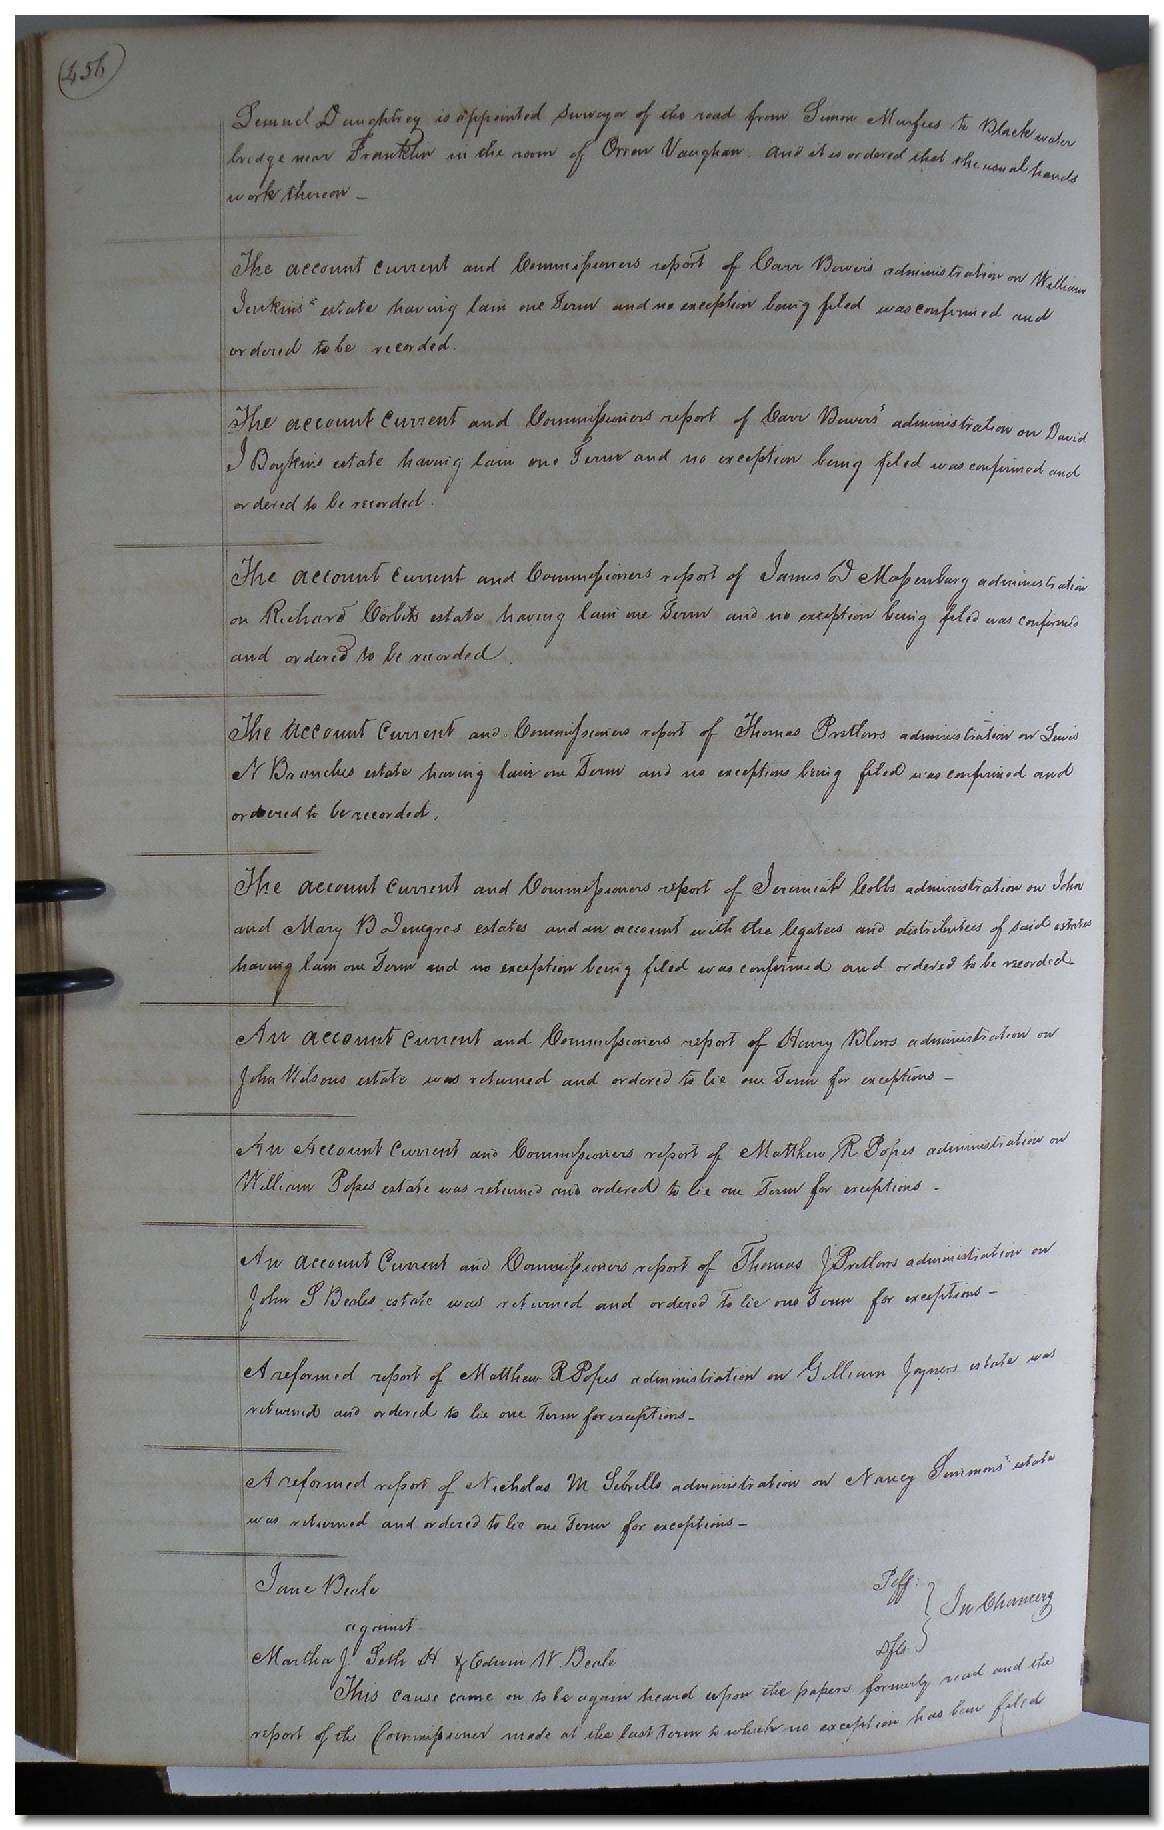 456
Lemuel Daughtrey is appointed Surveyor of the road from Simon Murfees to Blackwater
bridge near Franklin in the room of Orren Vaughan. And it is ordered that the usual hands
work thereon –
The account current and Commissioners report of Carr Bowers administration on William
Jenkins' estate having lain one Term and no exception being filed was confirmed and
ordered to be recorded.
The account current and Commissioners report of Carr Bowers' administration on David
J Boykins estate having lain one Term and no exception being filed was confirmed and
ordered to be recorded.
The account current and Commissioners report of James W Massenburg administration
on Richard Corbits estate having lain one Term and no exception being filed was confirmed
and ordered to be recorded.
The account current and Commissioners report of Thomas Pretlows administration on Lewis
N Branches estate having lain one Term and no exceptions being filed was confirmed and
ordered to be recorded.
The account current and Commissioners report of Jeremiah Cobbs administration on John
and Mary B estates and an account with the legatees and distributees of said estates
having lain one Term and no exception being filed was confirmed and ordered to be recorded.
An account current and Commissioners report of Henry Blows administration on
John Wilsons estate was returned and ordered to lie one Term for exceptions –
An Account Current and Commissioners report of Matthew R Popes administration on
William Popes estate was returned and ordered to lie one Term for exceptions –
An account Current and Commissioners report of Thomas J Pretlows administration on
John S Beales estate was returned and ordered to lie one Term for exceptions –
A reformed report of Matthew R Popes administration on Gilliam Joyners estate was
returned and ordered to lie one Term for exceptions –
A reformed report of Nicholas M Sebrells administration on Nancy Simmons' estate
was returned and ordered to lie one Term for exceptions –
Jane Beale Plff.
against In Chancery
Martha J Seth H & Edwin W. Beale Dfts.
This cause came on to be again heard upon the papers formerly read and the
report of the Commissioner made at the last Term to which no exception has been filed